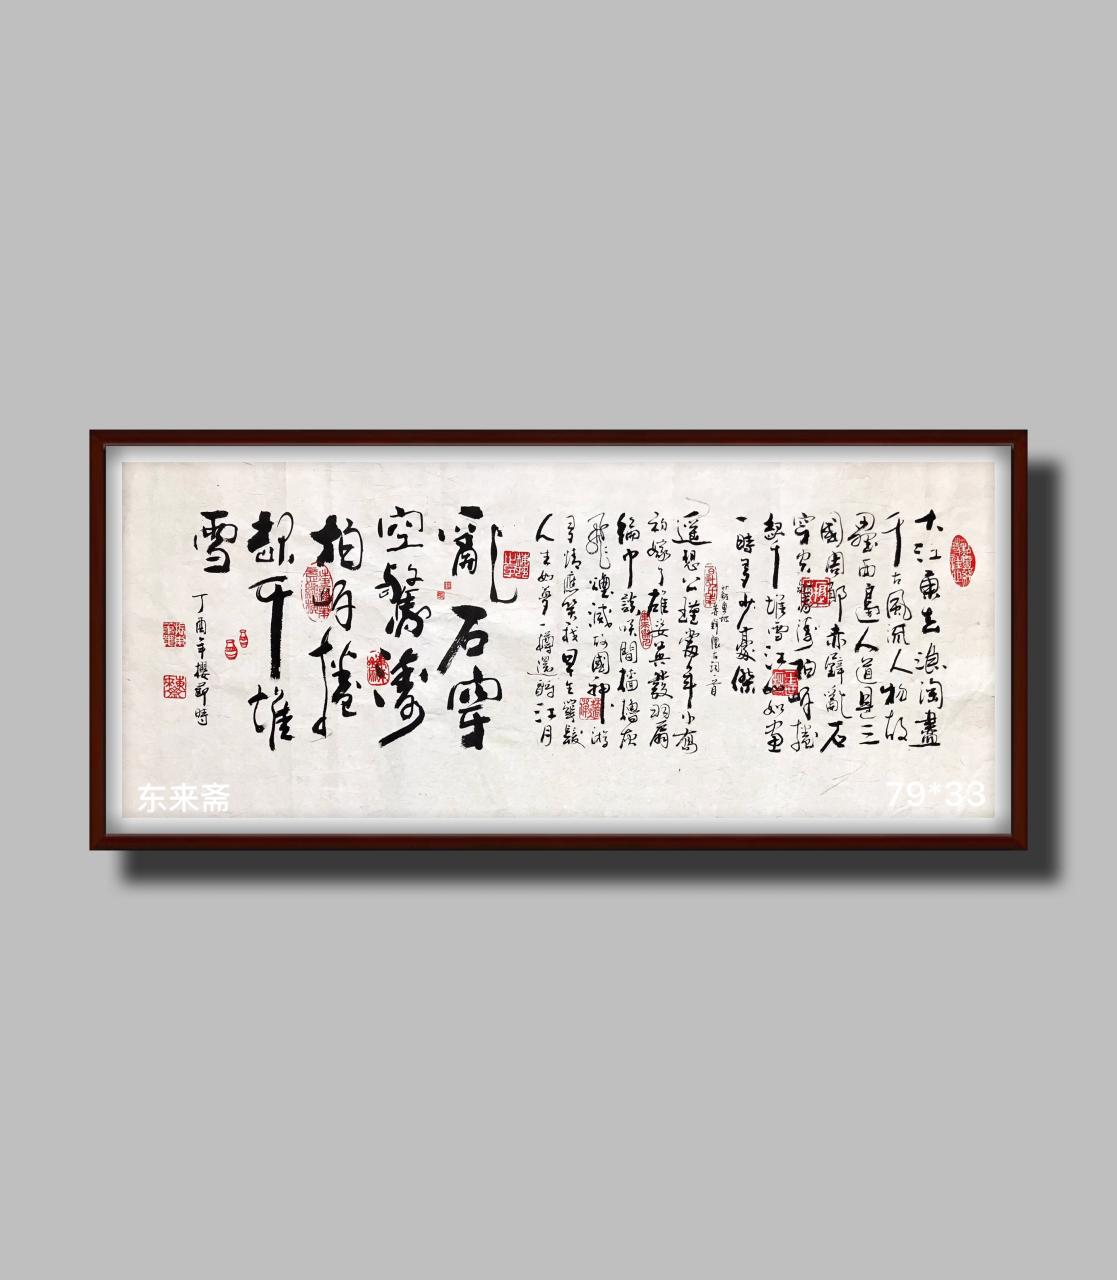 大江東去浪淘盡
千古風流人物故
壘西邊人道是三
國周郎赤壁亂石
穿空驚濤拍岸捲
起千堆雪江山如畫
一時多少豪傑
遙想公瑾當年小喬
初嫁了雄姿英發羽扇
綸巾談笑間檣櫓灰
飛煙滅故國神游
多情應笑我早生華髮
人生如夢一樽還酹江月
亂石穿
空驚濤
拍岸捲
起千堆
雪
丁酉年櫻
东来斋
79*33